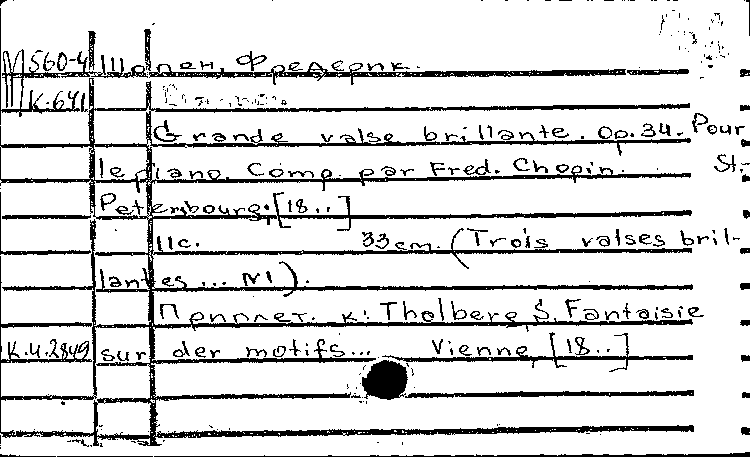 М 560-4 Шопен, Фредерик.
К-641
Grande valse brillante. Op. 34. Pour
le piano. Comp. par Fred. Chopin. St.-
Petersbourg, [18..]
11с. 33 cm. (Trois valses bril-
lantes... N1).
Приплет. к: Thalberg, S. Fantaisie
К.И.2849 sur der motifs... Vienne, [18..]